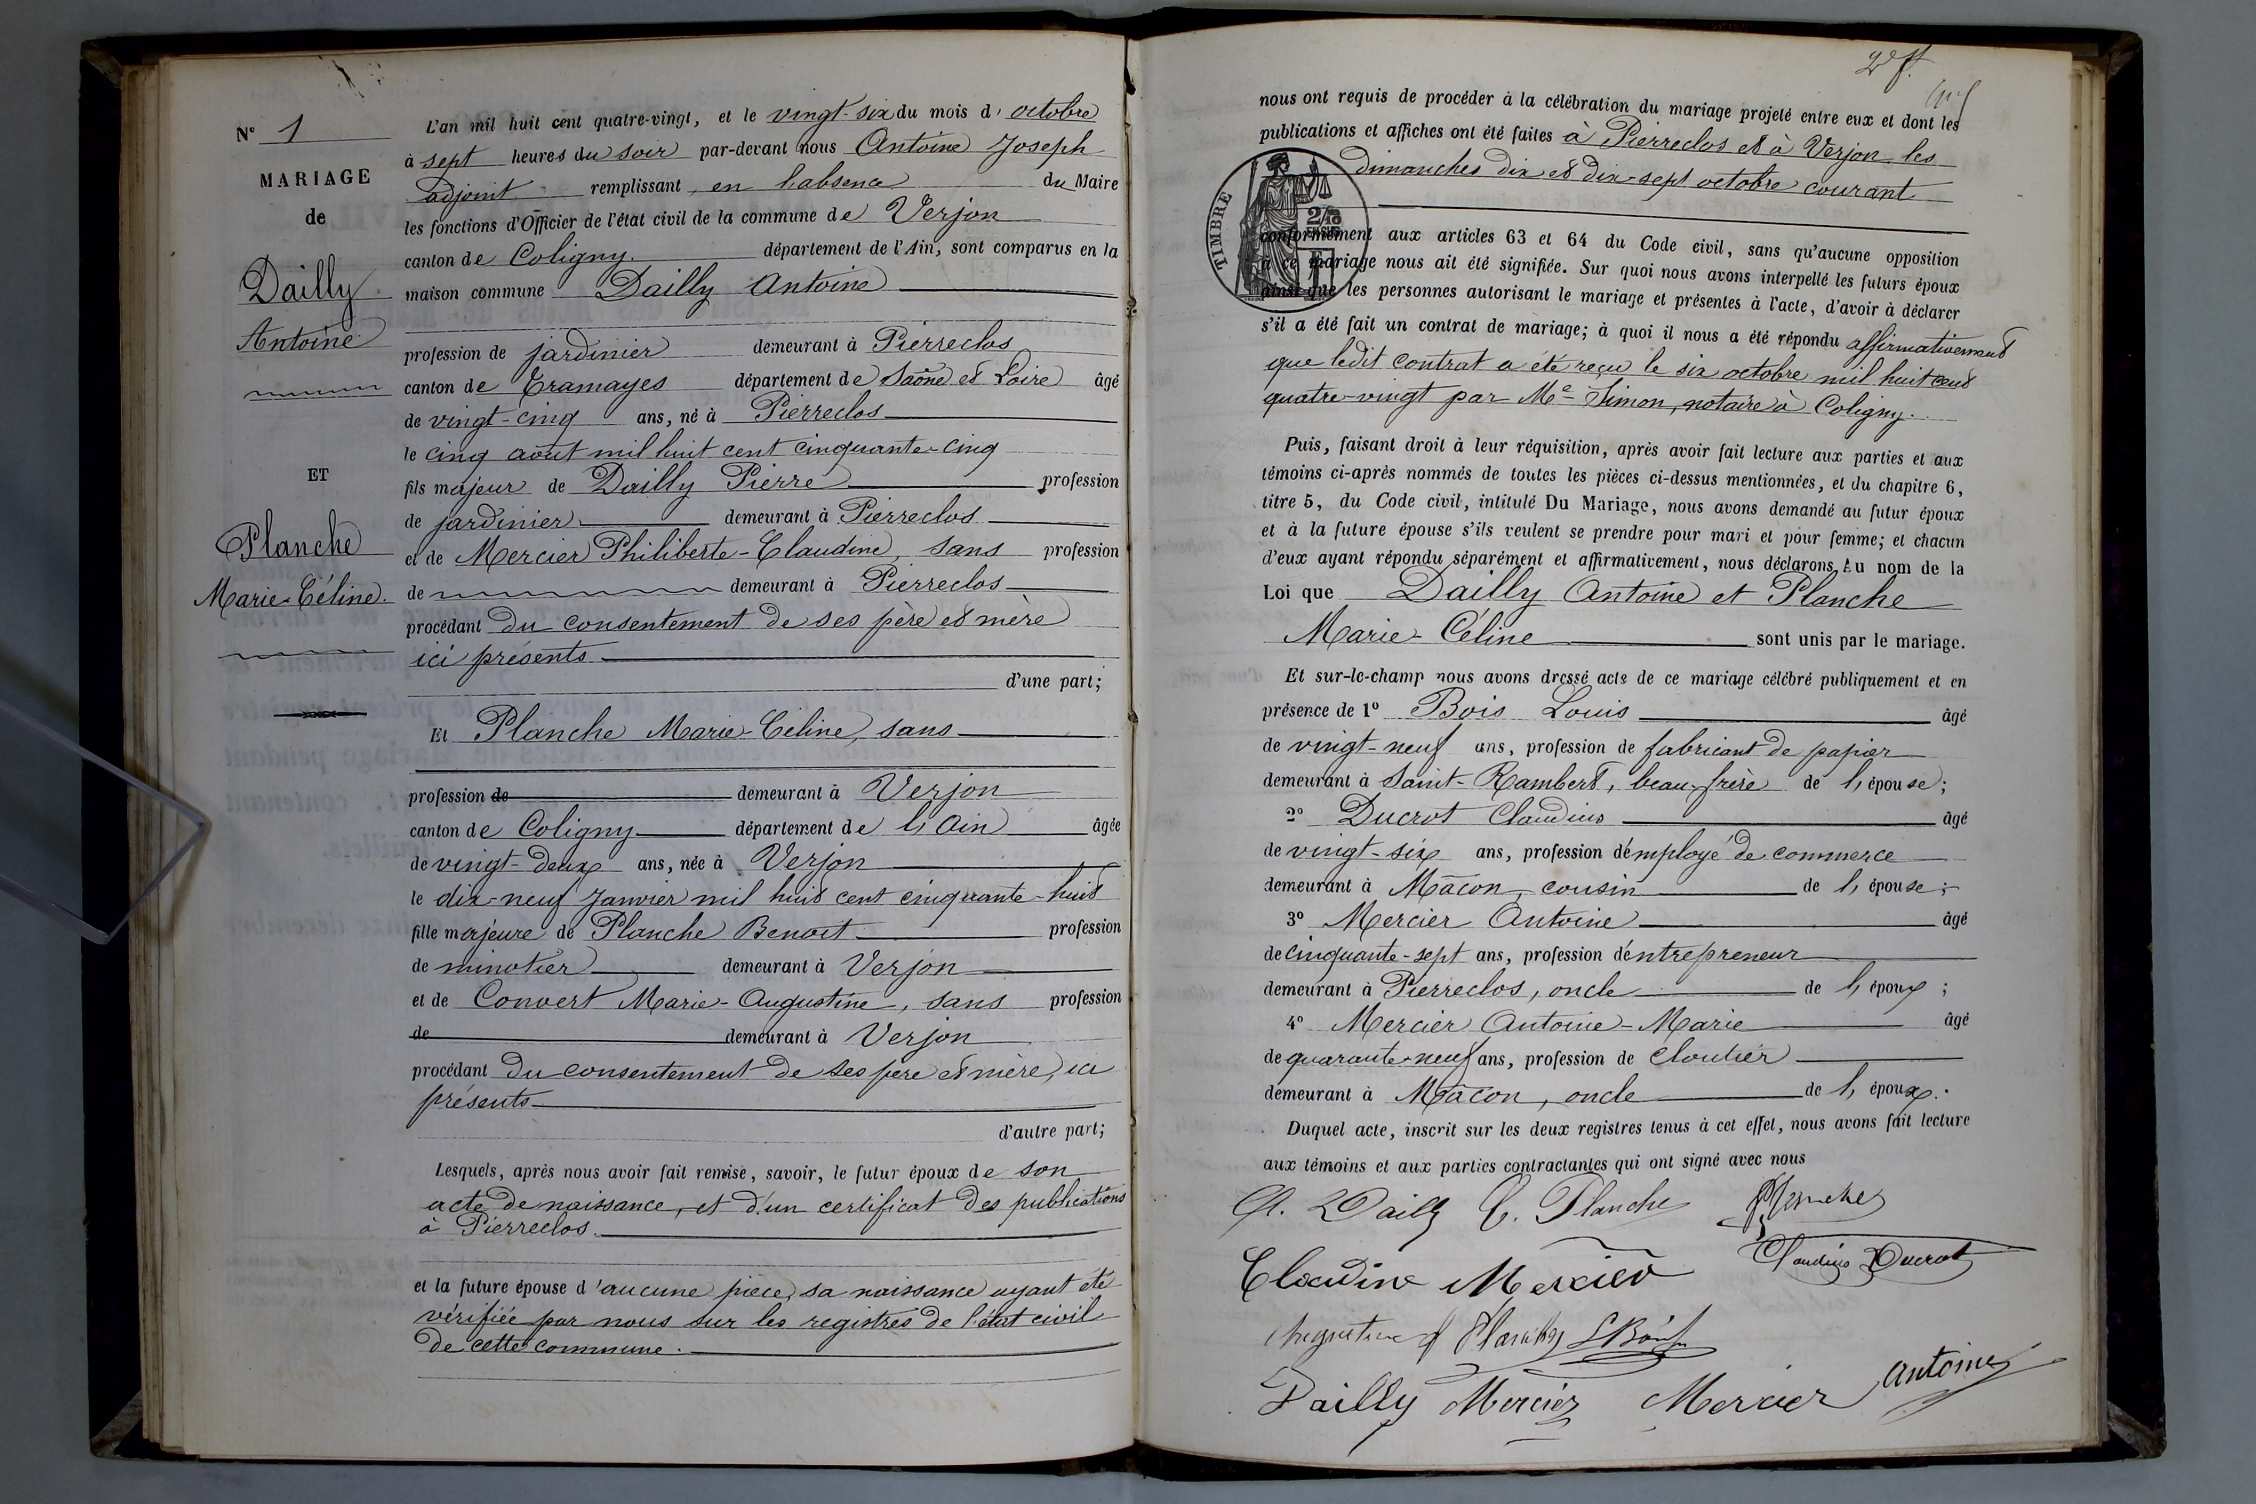 N° 1
MARIAGE
de
Dailly
Antoine
ET
Planche
Marie-Céline.
L'an mil huit cent quatre-vingt, et le vingt-six du mois d'octobre
à sept heures du soir par-devant nous Antoine Joseph
adjoint remplissant en l'absence du Maire
les fonctions d'Officier de l'état civil de la commune de Verjon
canton de Coligny. département de l'Ain, sont comparus en la
maison commune Dailly Antoine
profession de jardinier demeurant à Pierreclos
canton de Tramayes département de Saône et Loire âgé
de vingt-cinq ans, né à Pierreclos
le cinq août mil huit cent cinquante-cinq
fils majeur de Dailly Pierre profession
de jardinier demeurant à Pierreclos
et de Mercier Philiberte-Claudine, sans profession
de demeurant à Pierreclos
procédant du consentement de ses père et mère
ici présents
d'une part;
Et Planche Marie-Céline, sans
profession de demeurant à Verjon
canton de Coligny département de l'Ain âgée
de vingt-deux ans, née à Verjon
le dix-neuf Janvier mil huit cent cinquante-huit
fille majeure de Planche Benoit profession
de minotier demeurant à Verjon
et de Convert Marie-Augustine, sans profession
de demeurant à Verjon
procédant du consentement de ses père et mère, ici
présents
d'autre part;
Lesquels, après nous avoir fait remise, savoir, le futur époux de son
acte de naissance, et d'un certificat des publications
à Pierreclos.
et la future épouse d'aucune pièce, sa naissance ayant été
vérifiée par nous sur les registres de l'état civil
de cette commune.
2e ft.
nous ont requis de procéder à la célébration du mariage projeté entre eux et dont les
publications et affiches ont été faites à Pierreclos et à Verjon, les
dimanches dix et dix-sept octobre courant
TIMBRE
conformément aux articles 63 et 64 du Code civil, sans qu'aucune opposition
à ce mariage nous ait été signifiée. Sur quoi nous avons interpellé les futurs époux
ainsi que les personnes autorisant le mariage et présentes à l'acte, d'avoir à déclarer
s'il a été fait un contrat de mariage; à quoi il nous a été répondu affirmativement
que ledit contrat a été reçu le six octobre mil huit cent
quatre-vingt par Me Simon, notaire à Coligny.
Puis, faisant droit à leur réquisition, après avoir fait lecture aux parties et aux
témoins ci-après nommés de toutes les pièces ci-dessus mentionnées, et du chapitre 6,
titre 5, du Code civil, intitulé Du Mariage, nous avons demandé au futur époux
et à la future épouse s'ils veulent se prendre pour mari et pour femme; et chacun
d'eux ayant répondu séparément et affirmativement, nous déclarons Au nom de la
Loi que Dailly Antoine et Planche
Marie-Céline sont unis par le mariage.
Et sur-le-champ nous avons dressé acte de ce mariage célébré publiquement et en
présence de 1° Bois Louis âgé
de vingt-neuf ans, profession de fabricant de papier
demeurant à Saint-Rambert, beau-frère de l'épouse;
2° Ducrot Claudius âgé
de vingt-six ans, profession d'employé de commerce
demeurant à Mâcon, cousin de l'épouse;
3° Mercier Antoine âgé
de cinquante-sept ans, profession d'entrepreneur
demeurant à Pierreclos, oncle de l'époux;
4° Mercier Antoine-Marie âgé
de quarante-neuf ans, profession de cloutier
demeurant à Mâcon, oncle de l'époux.
Duquel acte, inscrit sur les deux registres tenus à cet effet, nous avons fait lecture
aux témoins et aux parties contractantes qui ont signé avec nous
A. Dailly C. Planche Planche
Claudine Mercier Claudius Ducrot
Planche LBois
Dailly Mercier Mercier Antoine